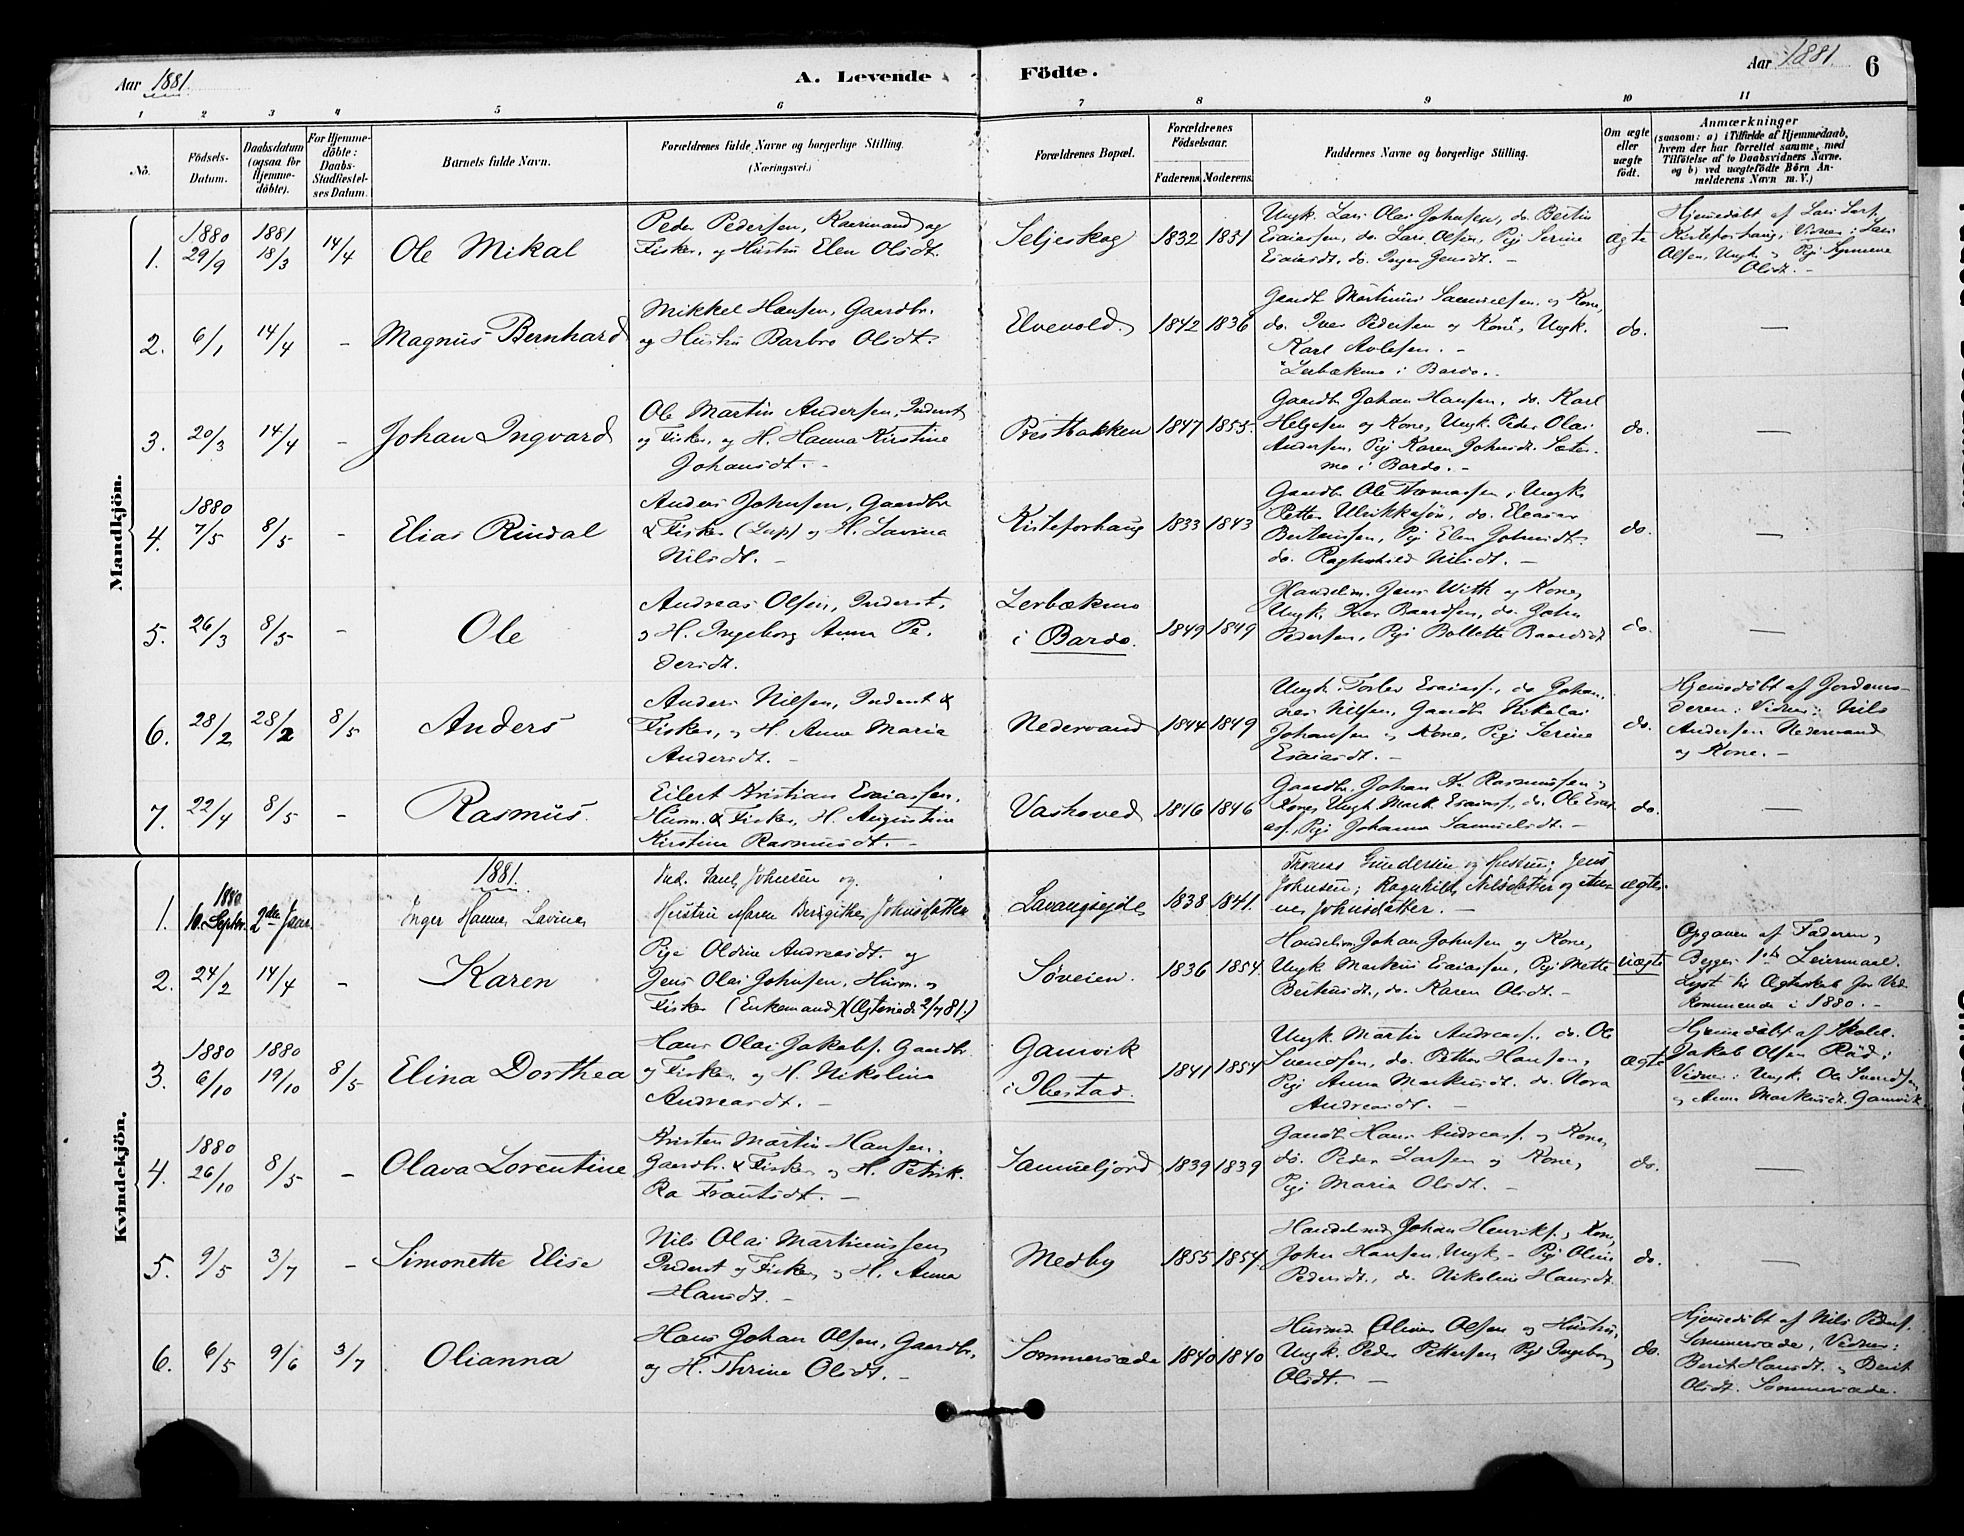 Aar 1881. A. Levende Födte. Aar 1881. 6
1 2 3 4 5 6 7 8 9 10 11
No.
Födsels-Datum.
Daabsdatum (ogsaa for Hjemme-döbte).
For Hjemme-döbte: Daabs-Stadfæstel-ses Datum.
Barnets fulde Navn.
Forældrenes fulde Navne og borgerlige Stilling.
(Næringsvei.)
Forældrenes Bopæl.
Forældrenes Födselsaar.
Faderens. Moderens.
Faddernes Navne og borgerlige Stilling.
Om ægte eller uægte födt.
Anmærkninger
(saasom: a) i Tilfælde af Hjemmedaab,
hvem der har forrettet samme, med
Tilföielse af to Daabsvidners Navne.
og b) ved uægtefödte Börn An-
melderens Navn m. V.)
Mandkjön.
1. 1880 29/9 1881 18/3 14/4 Ole Mikal
Peder Pedersen, Kaarmand og
Fisker, og Hustru Elen Olsdt.
Seljeskog 1832 1851
Ungk. Lars Olai Johnsen, do. Bertin
Esaiassen, do. Lars Olsen, Pige Serine
Esaiasdt. do. Inger Jensdt. -
Ægte
Hjemedøbt af Lars Lars.
Kisteforhaug, Vidner: Lars
Olsen, Ungk. og Pige
Olsdt. -
2. 6/1 14/4 - Magnus Bernhard
Mikkel Hansen, Gaardbr.
og Hustru Barbro Olsdt.
Elvevold. 1842 1836
Gaardb. Martinus Samuelsen og Kone,
do. Iver Pedersen og Kone*, Ungk.
Karl Avlesen. -
*Lerbækmo i Bardo. -
do. -
3. 20/3 14/4 - Johan Ingvard
Ole Martin Andersen, Inderst
og Fisker, og H. Hanna Kirstine
Johansdt. -
Prestbakken 1847 1855.
Gaardb. Johan Hansen, do. Karl
Helgesen og Kone, Ungk. Peder Olai
Andersen, Pige Karen Johnsdt. Sæter-
mo i Bardo. -
do. -
4. 1880 7/5 8/5 - Elias Rindal
Anders Johnsen, Gaardbr
& Fisker (Lap) og H. Lavina
Nilsdt. -
Kisteforhaug 1833 1843
Gaardbr Ole Thomassen, Ungk.
Petter Ulrikkasøn, do. Eleasar
Berteussen, Pige Elen Johnsdt.
do. Raghnhild Nilsdt. -
do. -
5. 26/3 8/5 - Ole
Andreas Olsen, Inderst,
og H. Ingeborg Anna Pe-
dersdt.
Lerbækmo
i Bardo. 1849 1849
Handelsm. Jens With og Kone,
Ungk. Iver Baardsen, do. John
Pedersen, Pige Bollette Baardsdt
do. -
6. 28/2 28/2 8/5 Anders
Anders Nilsen, Inderst &
Fisker, og H. Anne Maria
Andersdt. -
Nedervand 1844 1849
Ungk. Torlev Esaiass., do. Johan-
nes Nilsen, Gaardb. Nikolai
Johansen og Kone, Pige Serine
Esaiasdt. -
do.
Hjemedøbt af Jordemo-
deren: Vidner: Nils
Andersen Nedervand
og Kone. -
7. 22/4 8/5 - Rasmus.
Eilert Kristian Esaiassen,
Husm. & Fisker, H. Augustine
Kirstine Rasmusdt. -
Vashoved 1846 1846
Gaardb. Johan A. Rasmussen og
Kone, Ungk. Mark. Esaiass., do. Ole Esai-
ass., Pige Johanna Samuelsdt. -
do. -
Kvindekjön.
1881.
1. 1880 10. Septbr. 2den Januar. - Inger Hanna Lavina
Ind. Paul Johnsen og
Hustru Maren Bergithe Johnsdatter
Lavangseidet 1838 1841.
Thomas Gundersen og Hustru; Jens
Johnsen; Ragnhild Nilsdatter og An-
ne Johnsdatter. -
ægte.
2. 24/2 14/4 - Karen
Pige Oldine Andreasdt. og
Jens Olai Johnsen, Husm. og
Fisker (Enkemand) (Ægteviede 2/7 81.)
Søveien. 1836 1854.
Handelsm. Johan Johnsen og Kone,
Ungk. Markus Esaiassen, Pige Mette
Berteusdt., do. Karen Olsdt. -
uægte
Opgaven af Faderen,
Begges 1ste Leiermaal.
Lyst til Ægteskab for Ved-
kommende i 1880. -
3. 1880 6/10 1880 19/10 8/5 Elina Dorthea
Hans Olai Jakobs. Gaardbr.
og Fisker, og H. Nikolina
Andreasdt. -
Gamvik
i Ibestad. 1841 1854
Ungk. Martin Andreass., do. Ole
Svendsen, do. Petter Hansen,
Pige Anna Markusdt. do. Nora
Andreasdt. -
Ægte
Hjemedøbt af Skolel.
Jakob Olsen Rød;
Vidner: Ungk. Ole Svendsen
og Anna Markusdt. Gamvik.
4. 1880 26/10 8/5 - Olava Lorentine
Kristen Martin Hansen,
Gaardbr. & Fisker, og H. Petrik-
ka Frantsdt. -
1839 1839
Gaardb. Hans Andreass. og Kone,
do. Peder Larsen og Kone,
Pige Maria Olsdt. -
do. -
5. 9/5 3/7 - Simonette Elise
Nils Olai Martinussen,
Inderst og Fisker, og H. Anna
Hansdt. -
Medby 1855 1854.
Handelsmd. Johan Henriks. og Kone,
John Hansen, Ungk. - Pige Oline
Pedersdt., do. Nikoline Hansdt.
do. -
6. 6/5 9/6 3/7 Olianna
Hans Johan Olsen, Gaardbr.,
og H. Thrine Olsdt. -
Sommersæde 1840 1840
Husmd. Oliver Olsen og Hustru,
Ungk. Peder Pettersen, Pige Ingeborg
Olsdt. -
do.
Hjemedøbt af Nils Peders.
Sommersæde, Vidner:
Berit Hansdt. og Berit
Olsdt. Sommersæde.